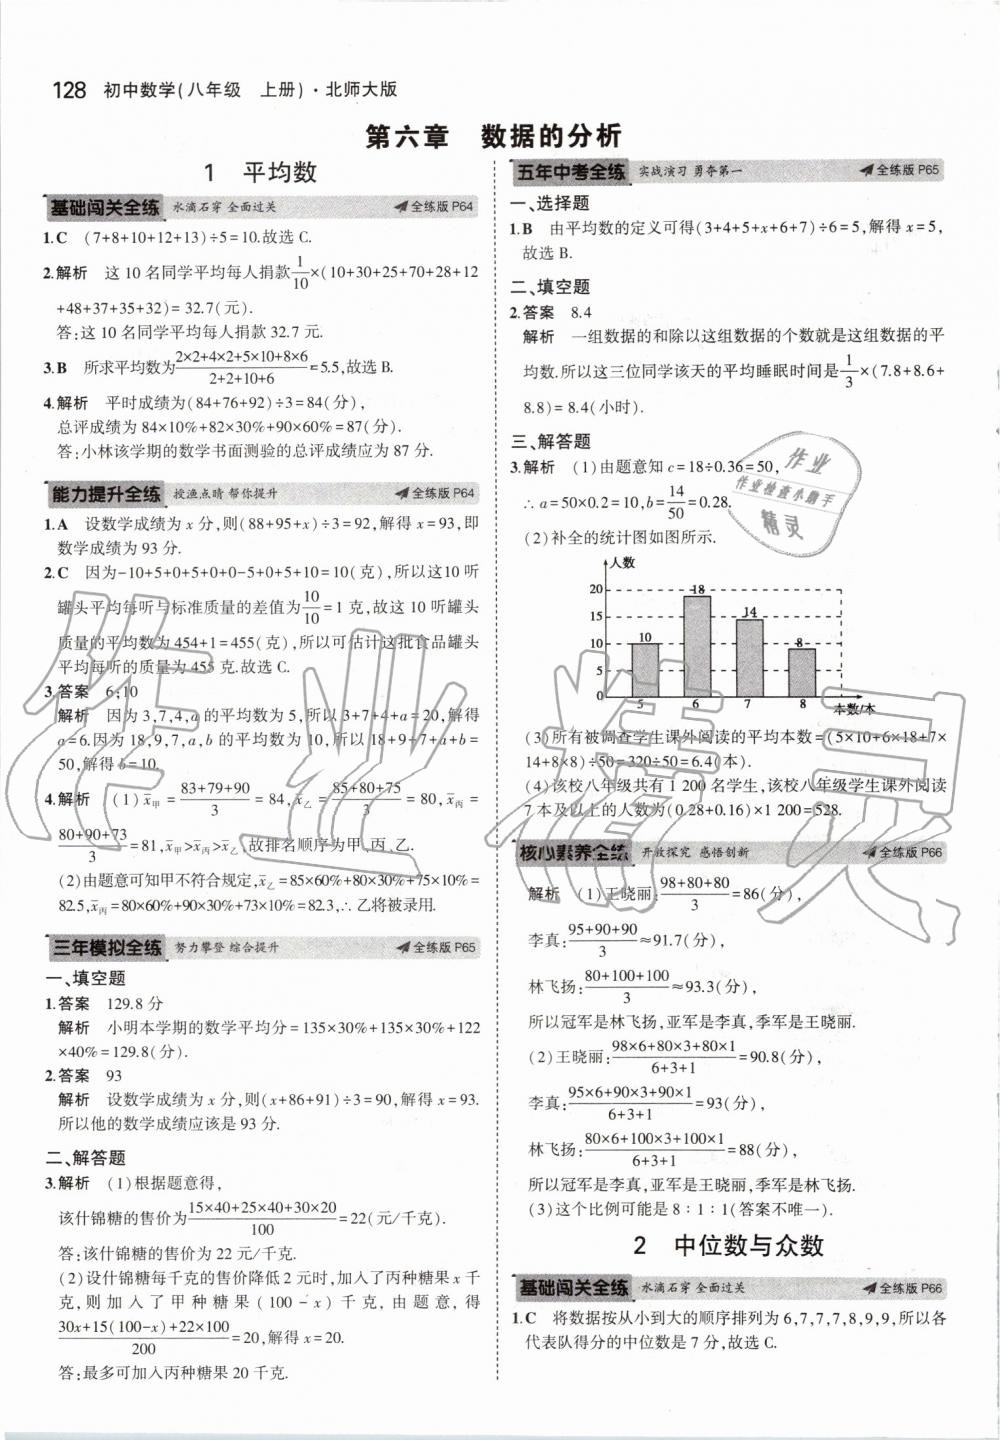 128 初中数学(八年级 上册)·北师大版
第六章 数据的分析
1 平均数
基础闯关全练 水滴石穿 全面过关 全练版 P64
1.C (7+8+10+12+13)÷5=10.故选 C.
2.解析 这 10 名同学平均每人捐款 1/10×(10+30+25+70+28+12
+48+37+35+32)=32.7(元).
答:这 10 名同学平均每人捐款 32.7 元.
3.B 所求平均数为 (2×2+4×2+5×10+8×6)/(2+2+10+6)=5.5,故选 B.
4.解析 平时成绩为(84+76+92)÷3=84(分),
总评成绩为 84×10%+82×30%+90×60%=87(分).
答:小林该学期的数学书面测验的总评成绩应为 87 分.
能力提升全练 授渔点睛 帮你提升 全练版 P64
1.A 设数学成绩为 x 分,则(88+95+x)÷3=92,解得 x=93,即
数学成绩为 93 分.
2.C 因为-10+5+0+5+0+0-5+0+5+10=10(克),所以这10 听
罐头平均每听与标准质量的差值为 10/10=1 克,故这 10 听罐头
质量的平均数为 454+1=455(克),所以可估计这批食品罐头
平均每听的质量为 455 克.故选 C.
3.答案 6;10
解析 因为 3,7,4,a 的平均数为 5,所以 3+7+4+a=20,解得
a=6.因为 18,9,7,a,b 的平均数为 10,所以 18+9+7+a+b=
50,解得 b=10.
4.解析 (1)x̄甲=(83+79+90)/3=84,x̄乙=(85+80+75)/3=80,x̄丙=
(80+90+73)/3=81,x̄甲>x̄丙>x̄乙,故排名顺序为甲、丙、乙.
(2)由题意可知甲不符合规定,x̄乙=85×60%+80×30%+75×10%=
82.5,x̄丙=80×60%+90×30%+73×10%=82.3,∴乙将被录用.
三年模拟全练 努力攀登 综合提升 全练版 P65
一、填空题
1.答案 129.8 分
解析 小明本学期的数学平均分=135×30%+135×30%+122
×40%=129.8(分).
2.答案 93
解析 设数学成绩为 x 分,则(x+86+91)÷3=90,解得 x=93.
所以他的数学成绩应该是 93 分.
二、解答题
3.解析 (1)根据题意得,
该什锦糖的售价为 (15×40+25×40+30×20)/100=22(元/千克).
答:该什锦糖的售价为 22 元/千克.
(2)设什锦糖每千克的售价降低 2 元时,加入了丙种糖果 x 千
克,则加入了甲种糖果(100-x)千克,由题意,得
(30x+15(100-x)+22×100)/200=20,解得 x=20.
答:最多可加入丙种糖果 20 千克.
五年中考全练 实战演习 勇夺第一 全练版 P65
一、选择题
1.B 由平均数的定义可得(3+4+5+x+6+7)÷6=5,解得 x=5,
故选 B.
二、填空题
2.答案 8.4
解析 一组数据的和除以这组数据的个数就是这组数据的平
均数.所以这三位同学该天的平均睡眠时间是 1/3×(7.8+8.6+
8.8)=8.4(小时).
三、解答题
3.解析 (1)由题意知 c=18÷0.36=50,
∴a=50×0.2=10,b=14/50=0.28.
(2)补全的统计图如图所示.
人数
20
15
10
5
0
10
18
14
8
5 6 7 8 本数/本
(3)所有被调查学生课外阅读的平均本数=(5×10+6×18+7×
14+8×8)÷50=320÷50=6.4(本).
(4)该校八年级共有 1 200 名学生,该校八年级学生课外阅读
7 本及以上的人数为(0.28+0.16)×1 200=528.
核心素养全练 开放探究 感悟创新 全练版 P66
解析 (1)王晓丽:(98+80+80)/3=86(分),
李真:(95+90+90)/3≈91.7(分),
林飞扬:(80+100+100)/3≈93.3(分),
所以冠军是林飞扬,亚军是李真,季军是王晓丽.
(2)王晓丽:(98×6+80×3+80×1)/(6+3+1)=90.8(分),
李真:(95×6+90×3+90×1)/(6+3+1)=93(分),
林飞扬:(80×6+100×3+100×1)/(6+3+1)=88(分),
所以冠军是李真,亚军是王晓丽,季军是林飞扬.
(3)这个比例可能是 8∶1∶1(答案不唯一).
2 中位数与众数
基础闯关全练 水滴石穿 全面过关 全练版 P66
1.C 将数据按从小到大的顺序排列为 6,7,7,7,8,9,9,所以各
代表队得分的中位数是 7 分,故选 C.
作业
作业检查小助手
精灵
作业精灵